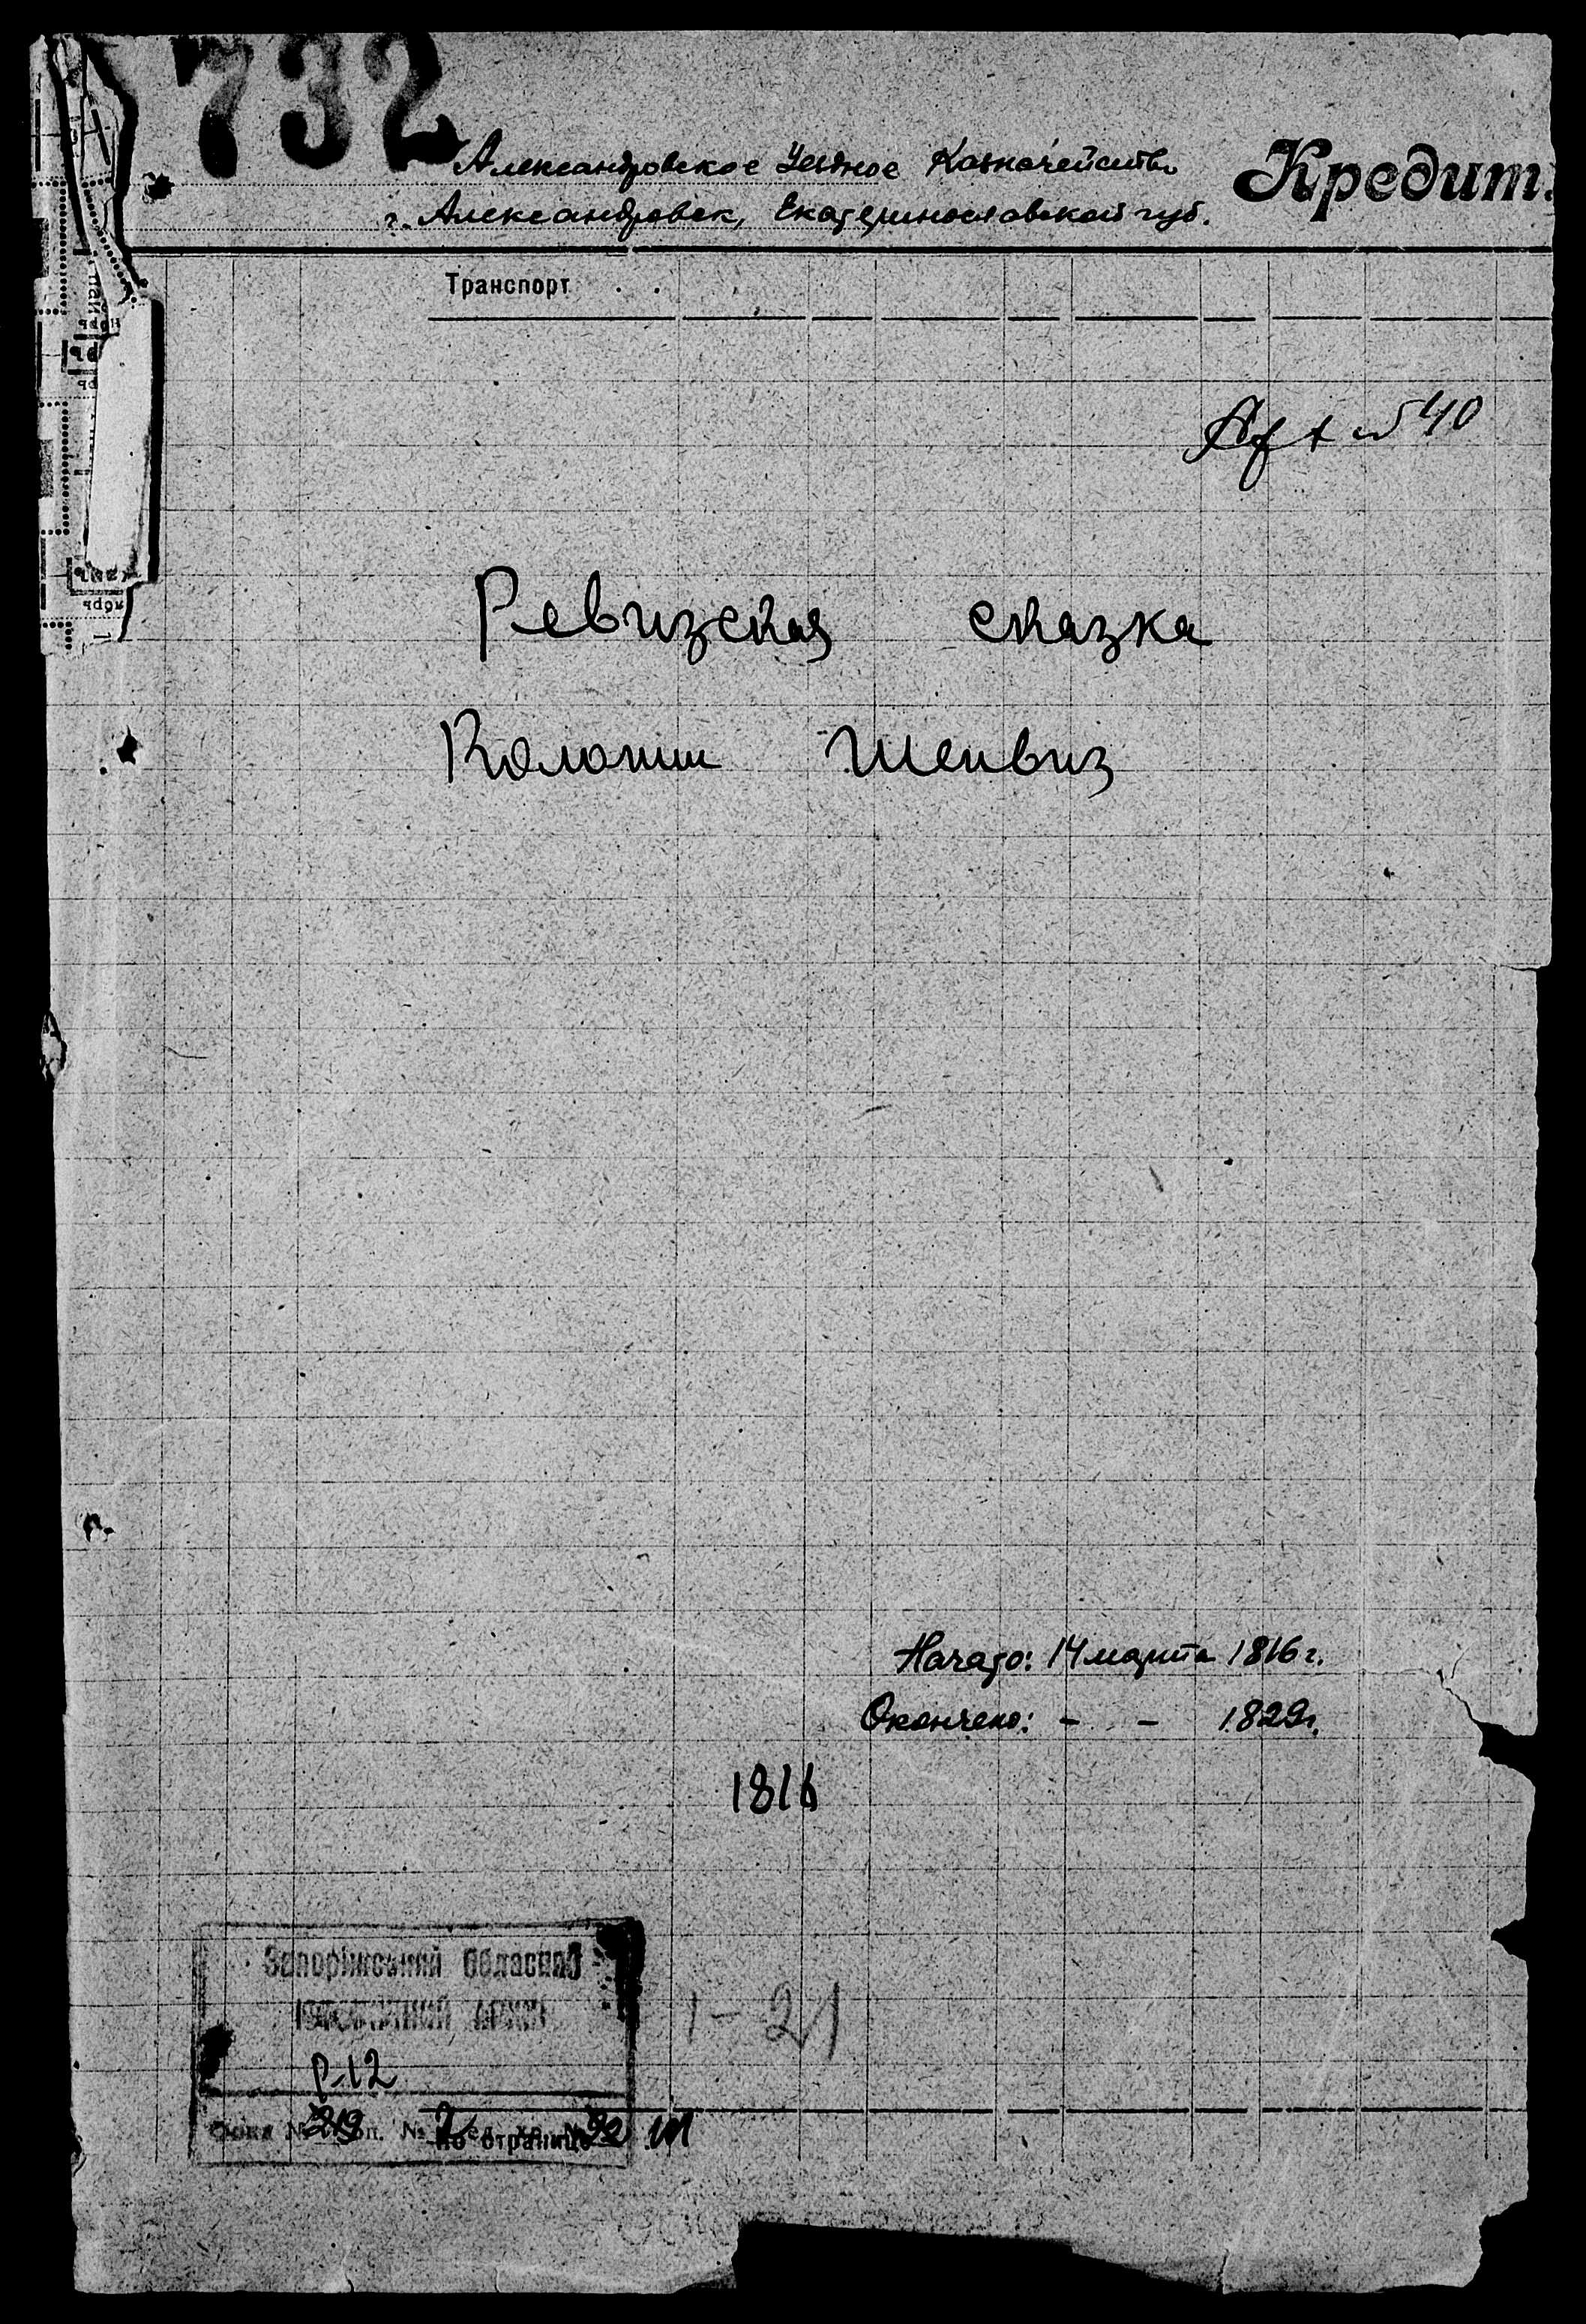 732
Александровское Уездное Казначейство
Кредит.
г. Александровск, Екатеринославской губ.
Транспорт . .
40
Ревизская сказка
Колонии Шенвиз
Начато: 14 марта 1816 г.
Окончено: - - 1829г.
1816
Запорізький Обласний
1-21
Р-12
Фонд № 219 оп. № 2
по странице